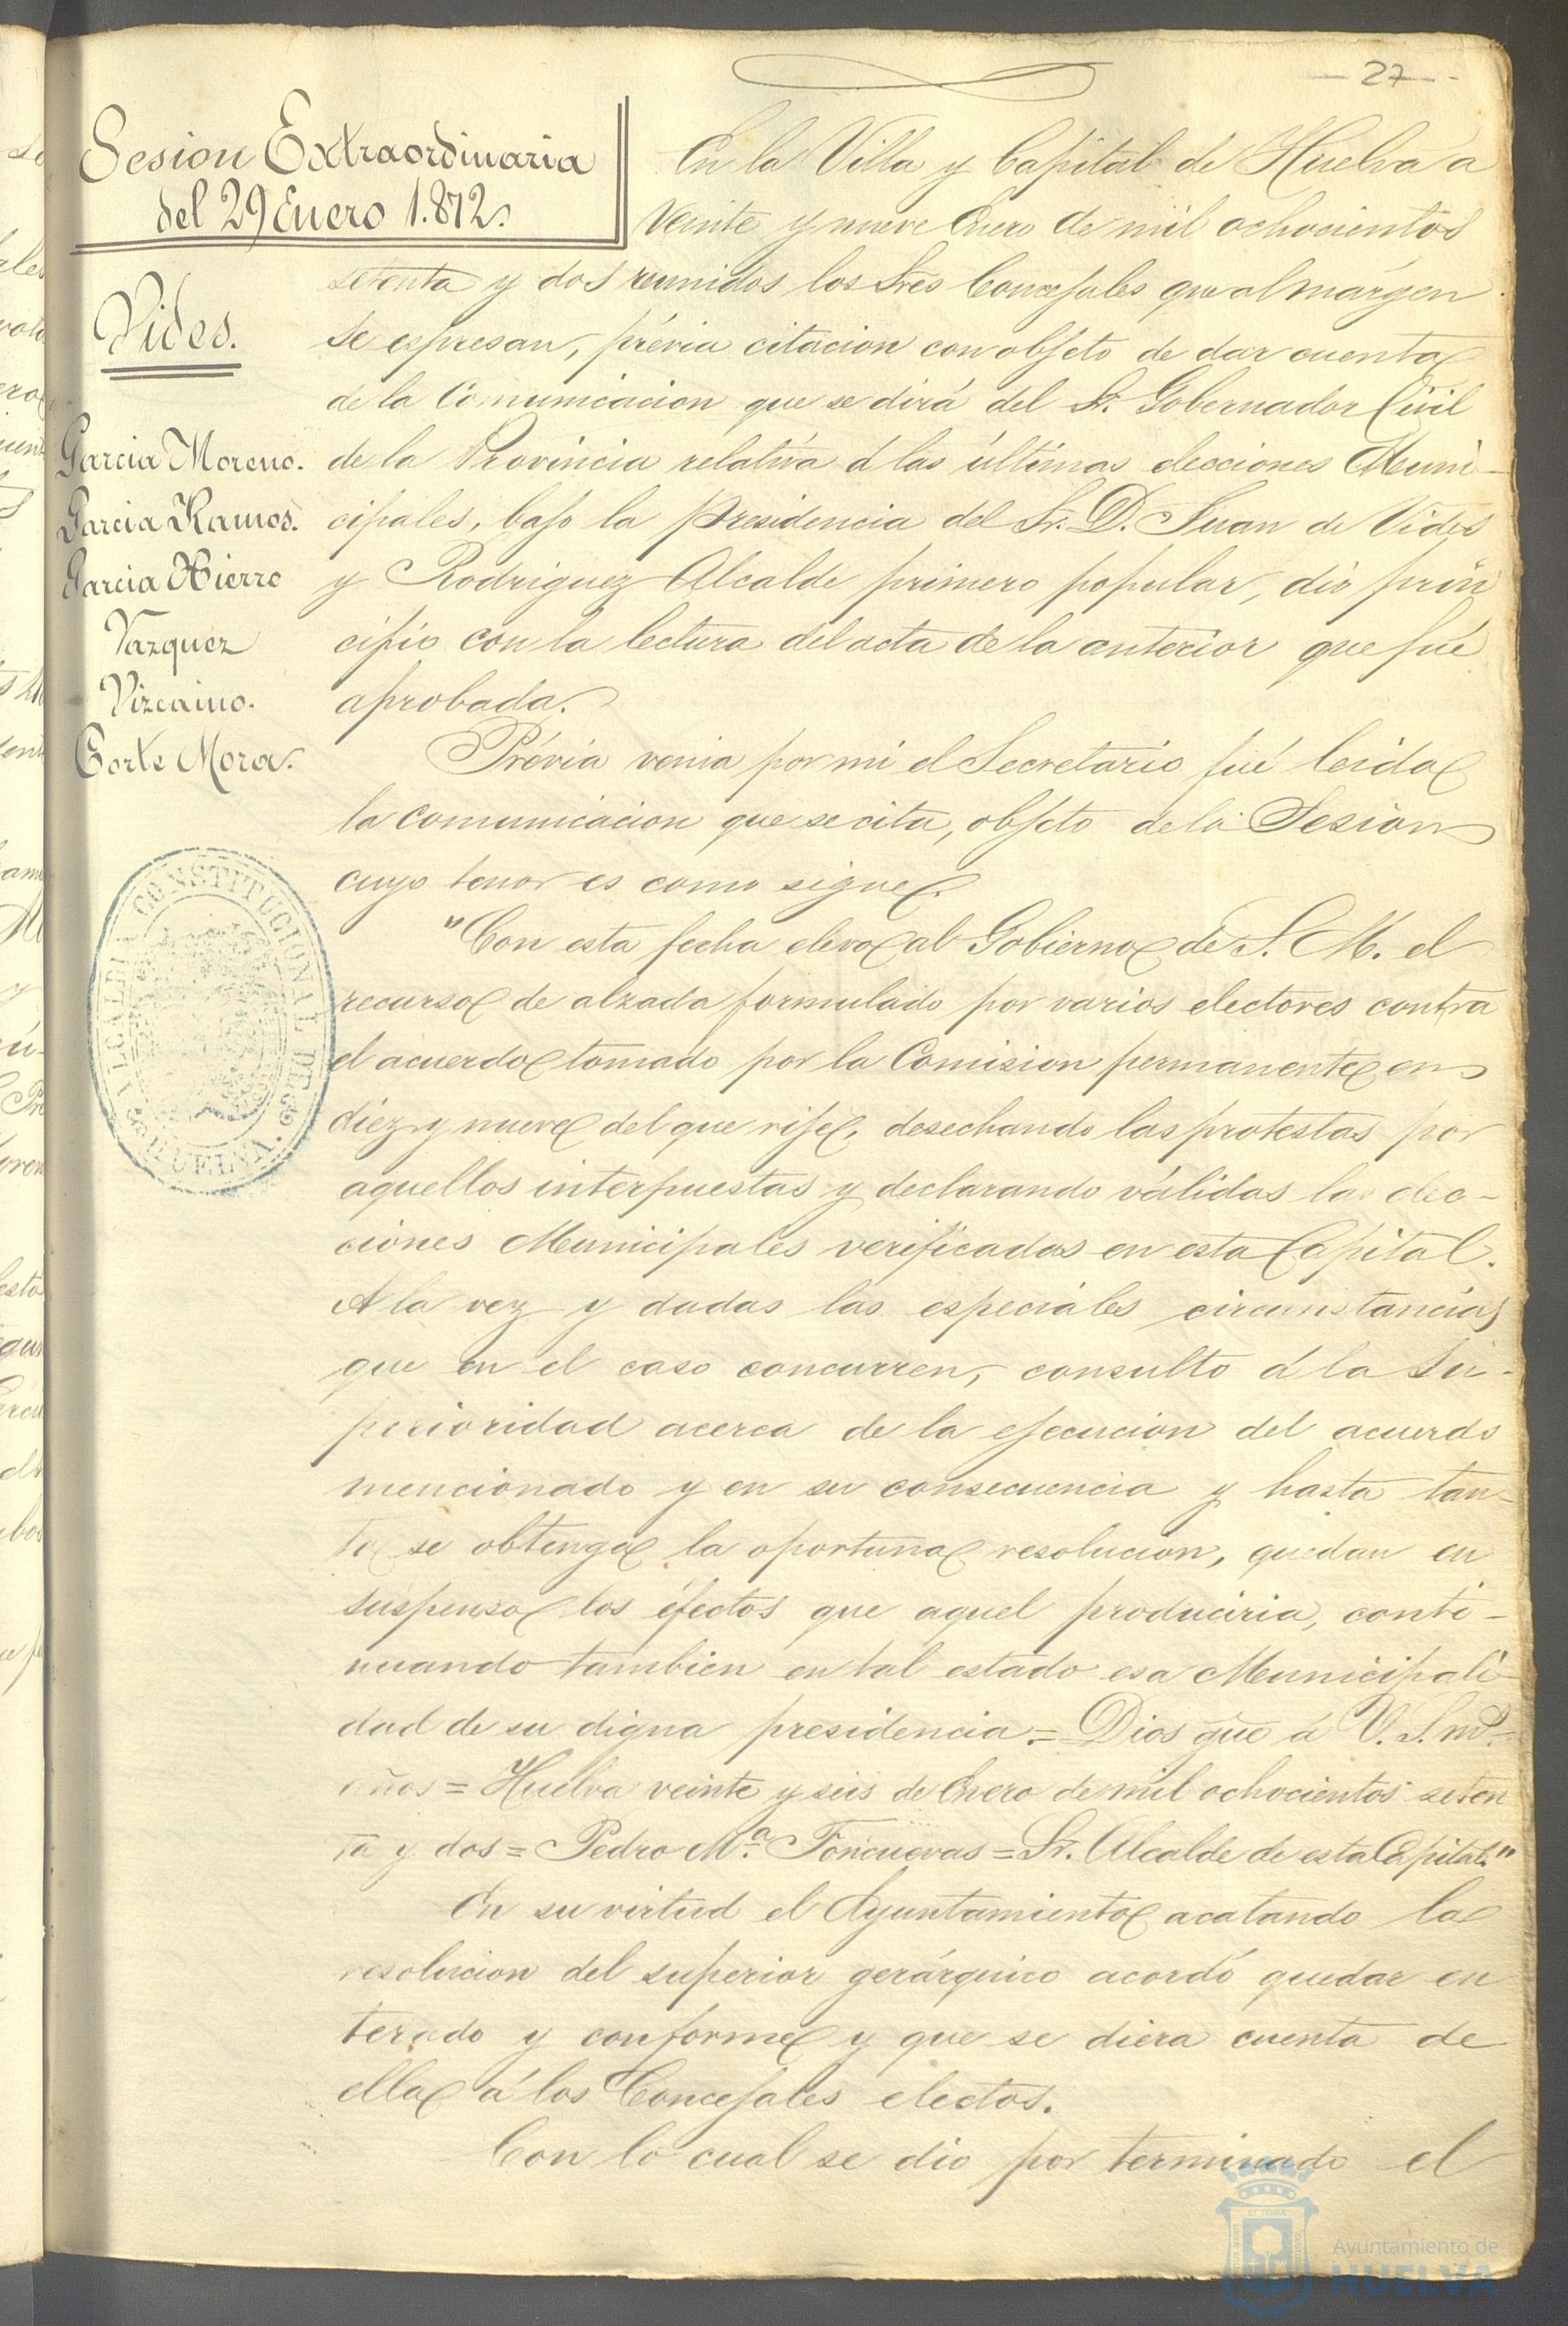 27
Sesion Extraordinaria
del 29 Enero 1.872.
Vides.
Garcia Moreno.
Garcia Ramos.
Garcia Hierro
Vazquez
Vizcaino.
Corte Mora.
En la Villa y Capital de Huelva a
veinte y nueve Enero de mil ochocientos
setenta y dos reunidos los Sres Concejales que al márgen
se espresan, prévia citacion con objeto de dar cuenta
de la Comunicacion que se dirá del Sr. Gobernador Civil
de la Provincia relativa á las últimas elecciones Muni-
cipales, bajo la presidencia del Sr. D. Juan de Vides
y Rodriguez Alcalde primero popular, dió prin
cipio con la lectura del acta de la anterior que fué
aprobada.
Prévia venia por mi el Secretario fué leida
la comunicacion que se cita, objeto de la Sesion
cuyo tenor es como sigue.
"Con esta fecha elevo al Gobierno de S. M. el
recurso de alzada formulado por varios electores contra
el acuerdo tomado por la Comision permanente en
diez y nueve del que rije, desechando las protestas por
aquellos interpuestas y declarando válidas las elec-
ciones Municipales verificadas en esta Capital.
A la vez y dadas las especiales circunstancias
que en el caso concurren, consulto á la Su-
perioridad acerca de la ejecucion del acuerdo
mencionado y en su consecuencia y hasta tan-
to se obtenga la oportuna resolucion, quedan en
suspenso los éfectos que aquel produciria, conti-
nuando tambien en tal estado esa Municipali-
dad de su digna presidencia.= Dios gue á V. S. ms.
años = Huelva veinte y seis de Enero de mil ochocientos seten
ta y dos = Pedro M.a Foncuevas = Sr. Alcalde de esta Capital."
En su virtud el Ayuntamiento acatando la
resolucion del superior gerárquico acordó quedar en
terado y conforme y que se diera cuenta de
ella á los Concejales electos.
Con lo cual se dió por terminado el
ALCALDIA CONSTITUCIONAL DE HUELVA.
Ayuntamiento de
HUELVA